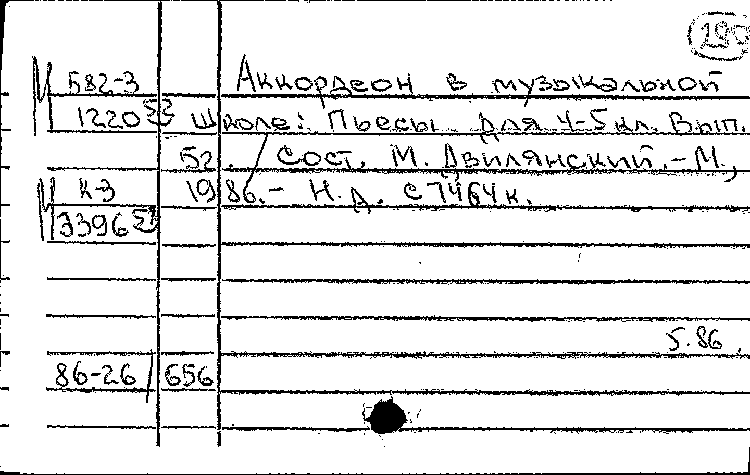 190
М Б82-3 Аккордеон в музыкальной
1220 школе: Пьесы для 4-5 кл. Вып.
52. / Сост. М. Двилянский. - М.,
М К-3 1986. - Н.д. с 7464 к.
3396
5.86.
86-26 / 656